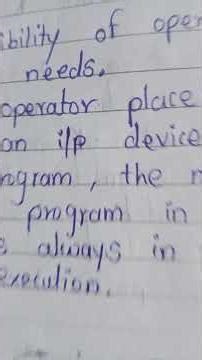 ibility of oper
needs.
operator place
an i/p device
rogram, the
program in
always in
execution.